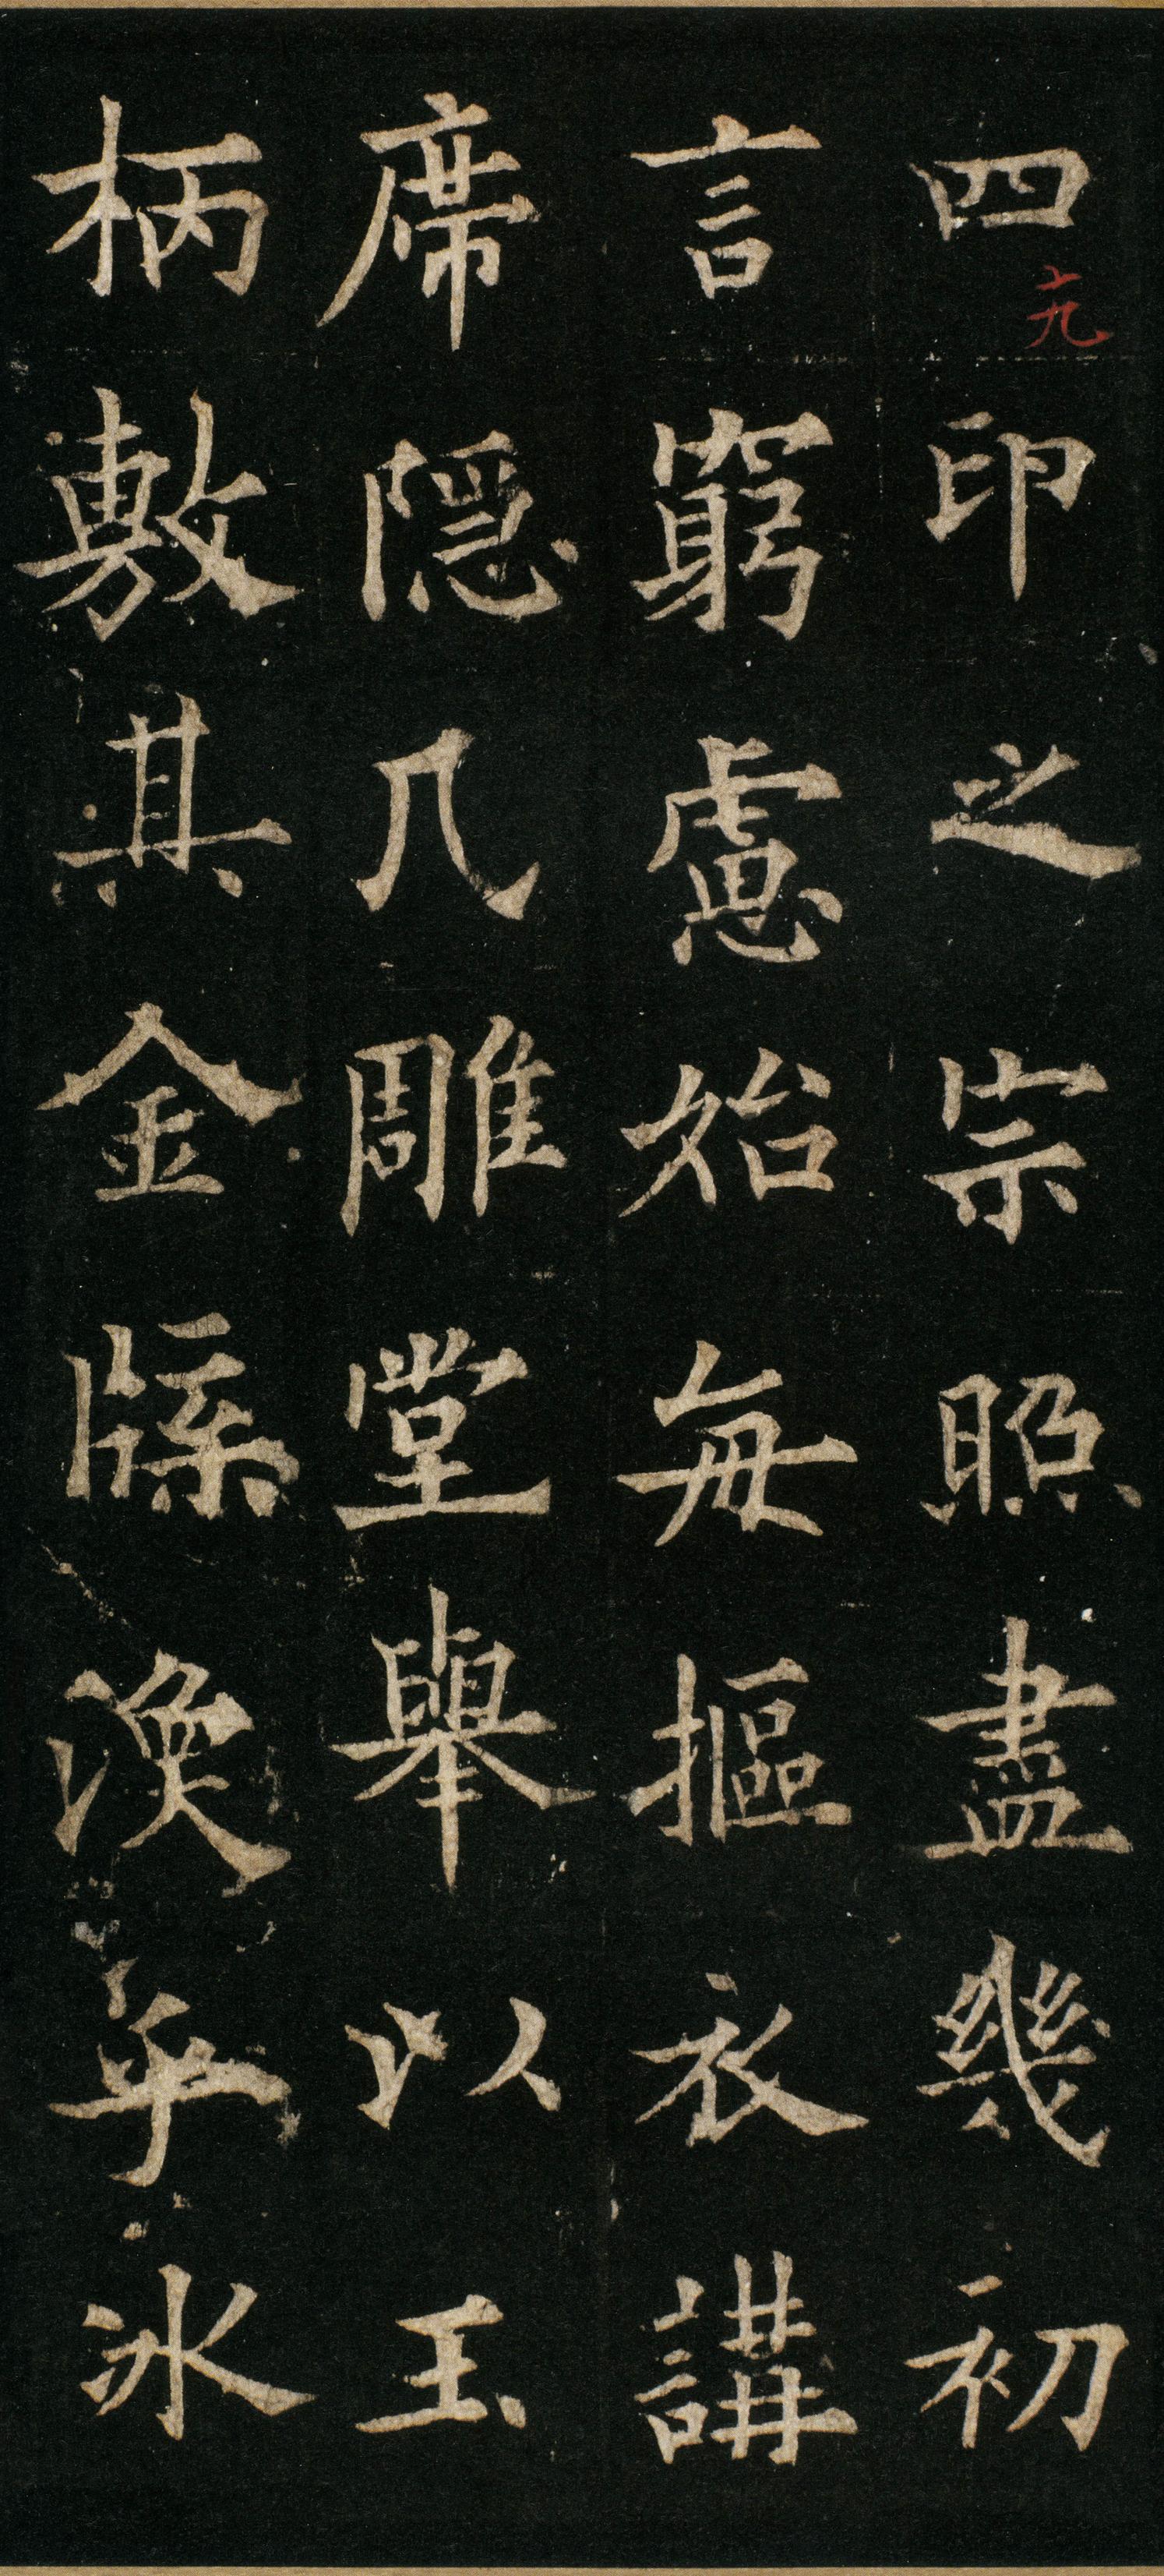 四印之宗照盡幾初
言窮慮始每摳衣講
席隱几雕堂舉以玉
柄敷其金牒渙乎冰